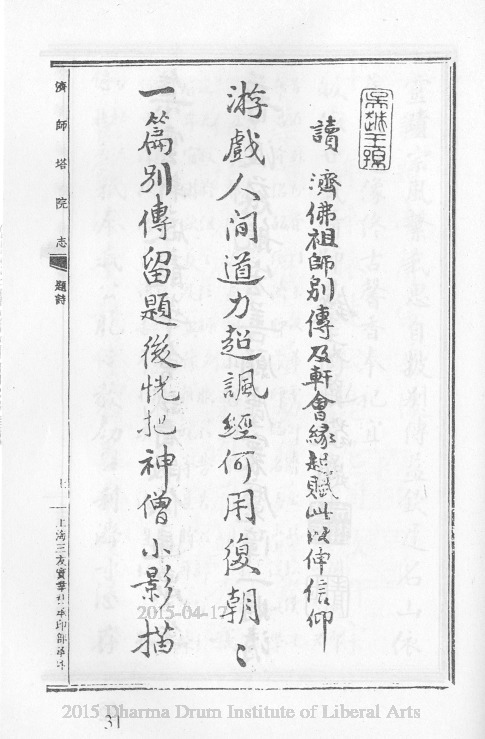 讀 濟佛祖師別傳及軒會緣起賦此以伸信仰
游戲人间道力超諷經何用復朝〻
一篇別傳留題後恍把神僧小影描
濟師塔院志 題詩
上海三友實業社承印部承印
2015-04-12
2015 Dharma Drum Institute of Liberal Arts
31